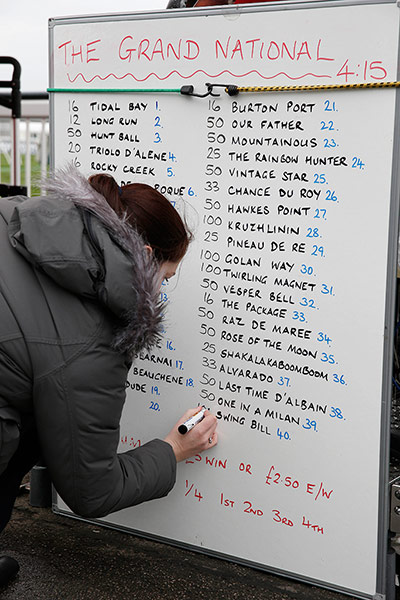 THE GRAND NATIONAL
4:15
16 TIDAL BAY 1.
12 LONG RUN 2.
50 HUNT BALL 3.
20 TRIOLO D'ALENE 4.
16 ROCKY CREEK 5.
ROQUE 6.
16.
17.
BEAUCHENE 18.
DUDE 19.
20.
16 BURTON PORT 21.
50 OUR FATHER 22.
50 MOUNTAINOUS 23.
25 THE RAINBOW HUNTER 24.
50 VINTAGE STAR 25.
33 CHANCE DU ROY 26.
50 HAWKES POINT 27.
100 KRUZHLININ 28.
25 PINEAU DE RE 29.
100 GOLAN WAY 30.
100 TWIRLING MAGNET 31.
50 VESPER BELL 32.
16 THE PACKAGE 33.
50 RAZ DE MAREE 34.
50 ROSE OF THE MOON 35.
25 SHAKALAKABOOMBOOM 36.
33 ALVARADO 37.
50 LAST TIME D'ALBAIN 38.
50 ONE IN A MILAN 39.
SWING BILL 40.
WIN OR £2.50 E/W
1/4 1ST 2ND 3RD 4TH